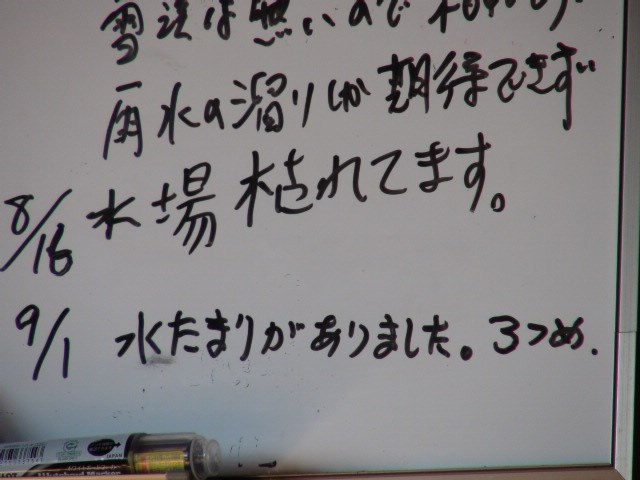 雪渓は無いので
雨水の溜りしか期待できず
8/16 水場 枯れてます。
9/1 水たまりがありました。3つめ.
JAPAN